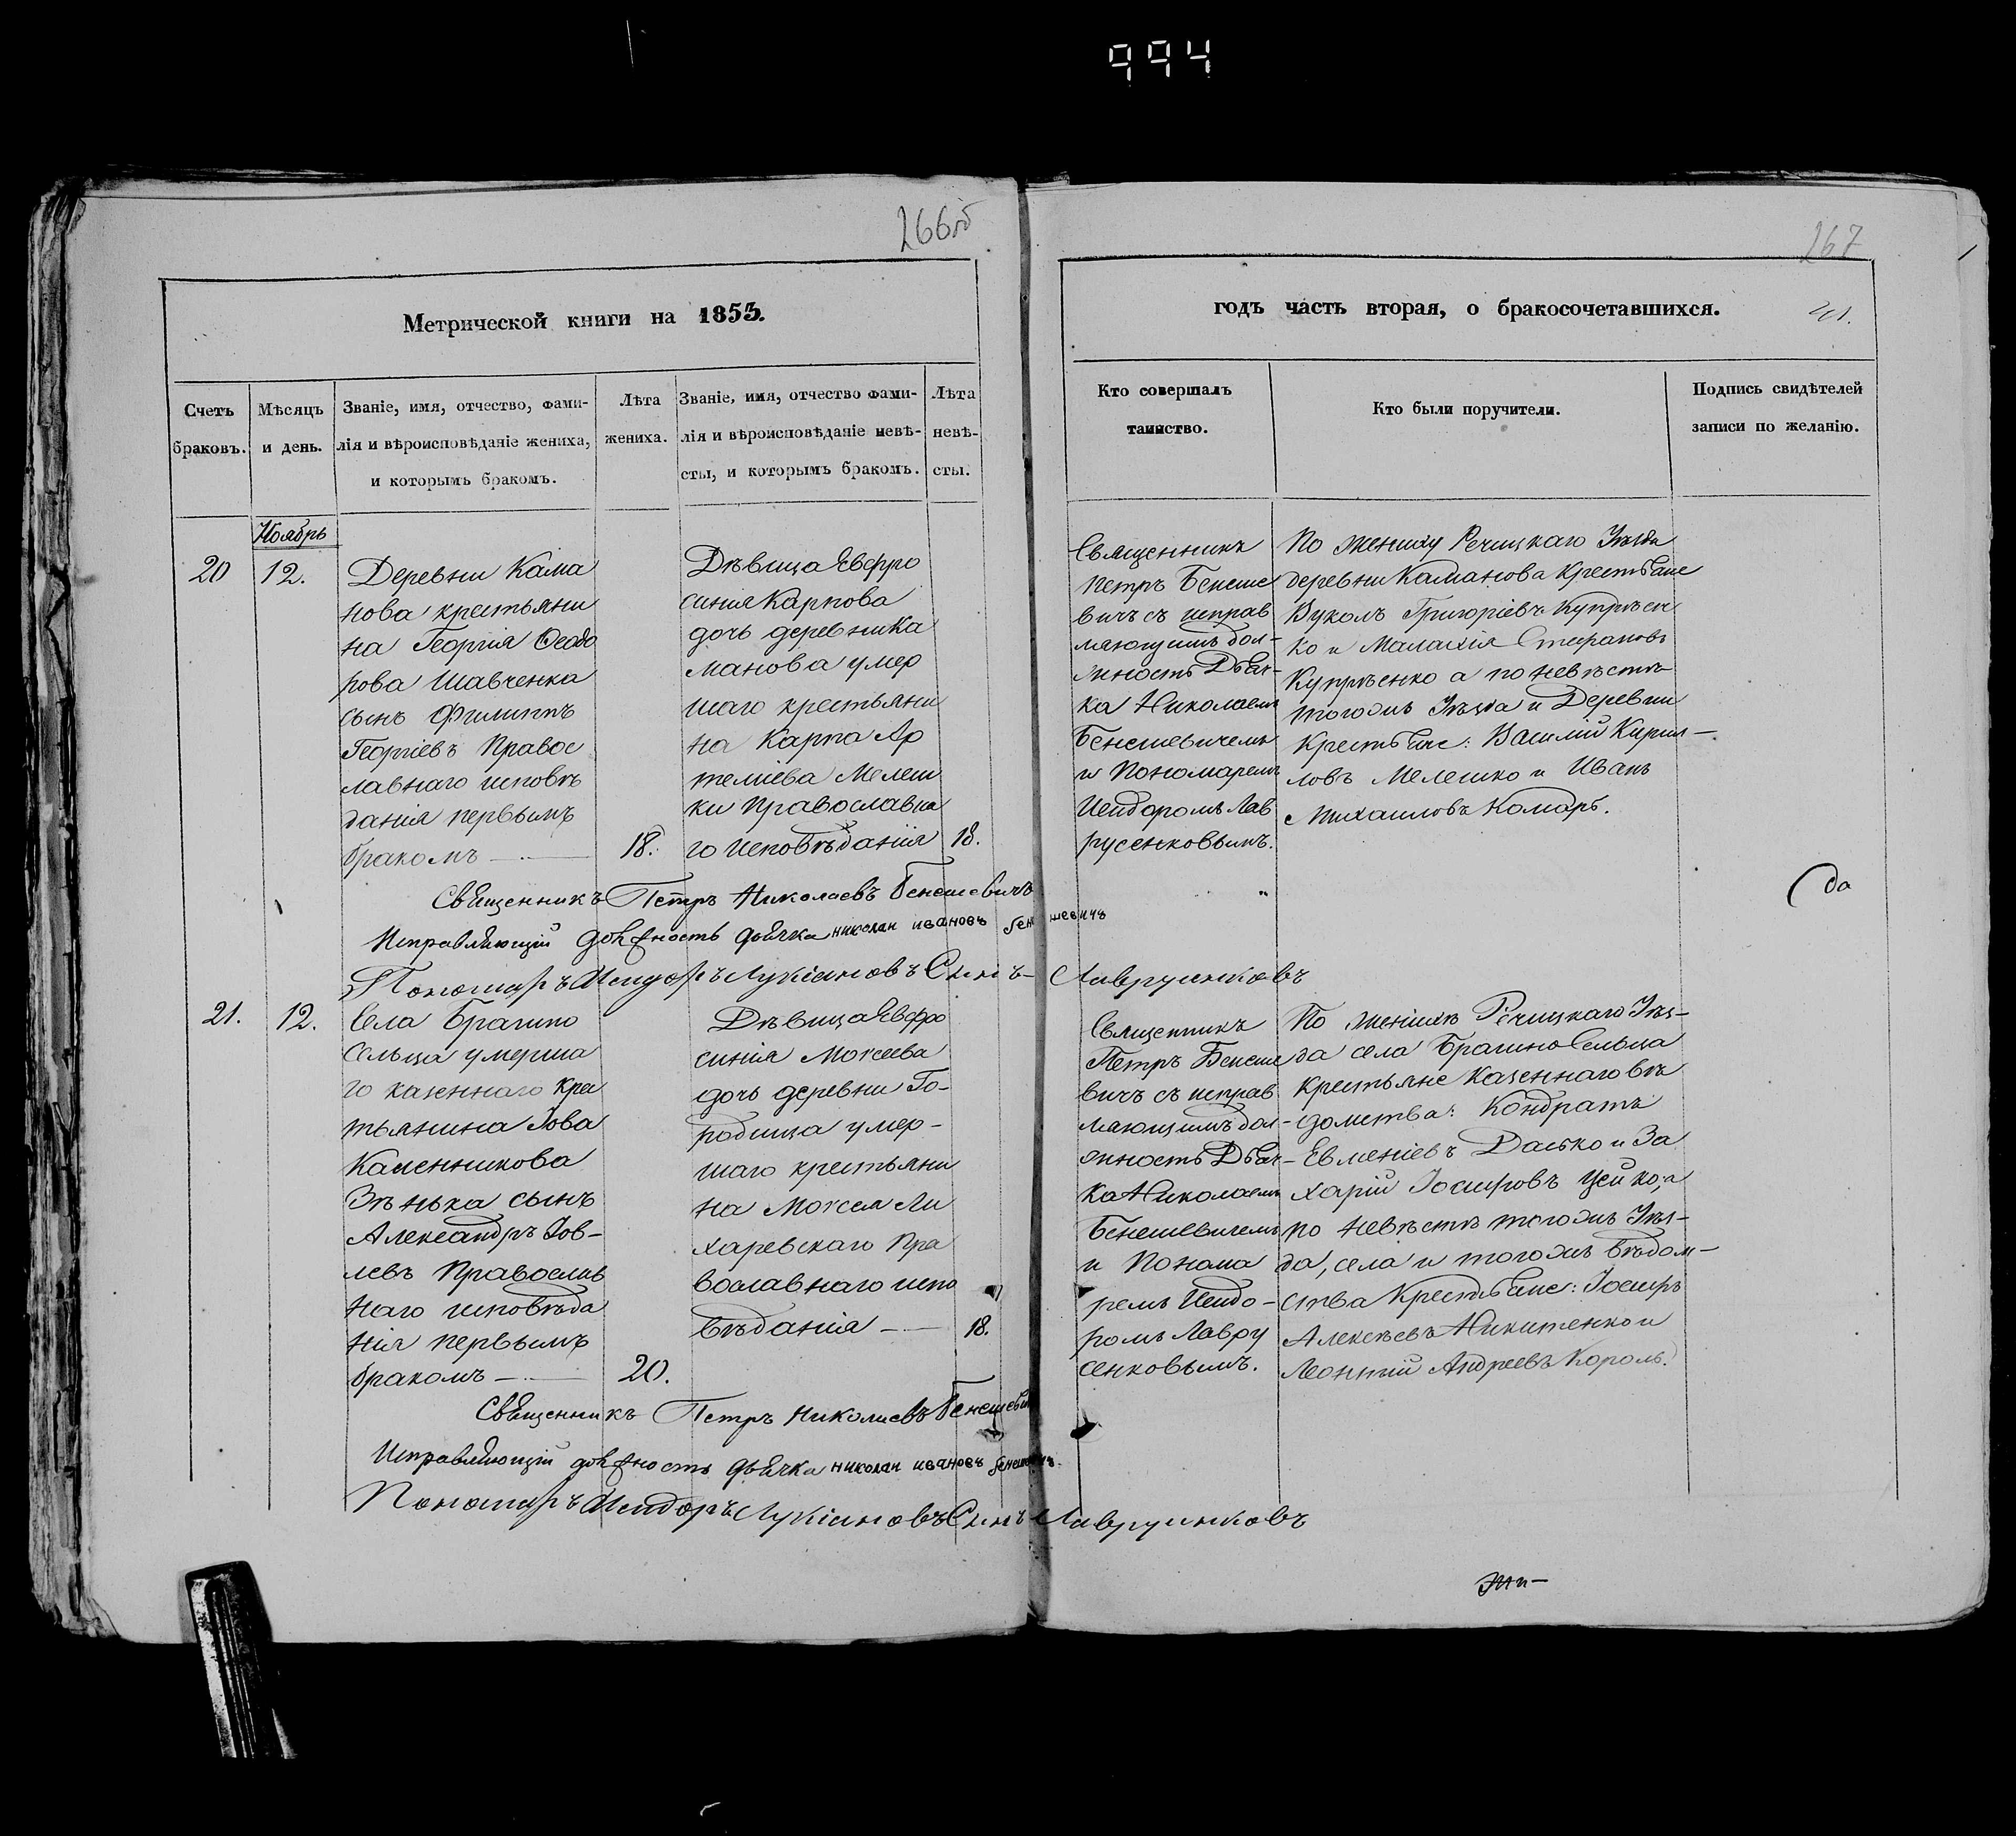 994
266об
267
Метрической книги на 1853.
годъ часть вторая, о бракосочетавшихся.
Счетъ браковъ.
Мѣсяцъ и день.
Званіе, имя, отчество, фами-
лія и вѣроисповѣданіе жениха,
и которымъ бракомъ.
Лѣта жениха.
Званіе, имя, отчество фами-
лія и вѣроисповѣданіе невѣ-
сты, и которымъ бракомъ.
Лѣта невѣ-
сты.
Кто совершалъ
таинство.
Кто были поручители.
Подпись свидѣтелей
записи по желанію.
Ноябрь
20
12.
Деревни Кама
нова крестьяни
на Георгія Ѳеодо
рова Шавченка
сынъ Филиппъ
Георгіевъ Правос
лавнаго исповѣ
данія первымъ
бракомъ
18.
Дѣвица Евфро
синія Карпова
дочь деревни Ка
манова умер
шаго крестьяни
на Карпа Ар
теміева Мелеш
ки православна
го исповѣданія
18.
Священникъ
Петръ Бенеше
вичъ съ исправ
ляющимъ дол-
жность Дьяч-
ка Николаемъ
Бенешевичемъ
и Пономаремъ
Исидоромъ Лав
русенковымъ.
По жениху Речицкаго Уѣзда
деревни Каманова Крестьяне
Вуколъ Григоріевъ Купрѣен
ко и Малахія Стефановъ
Купрѣенко а по невѣстѣ
тогожъ Уѣзда и Деревни
Крестьяне: Василій Кирил-
ловъ Мелешко и Иванъ
Михаиловъ Комаръ.
Священникъ Петръ Николаевъ Бенешевичъ
Исправляющій должность дьячка николай ивановъ бенешевичъ
Пономарь Исидоръ Лукіановъ Сынъ Лаврусенковъ
21.
12.
Села Брагино
Сельца умерша
го казеннаго Крес
тьянина Іова
Каленникова
Зѣнька сынъ
Александръ Іов-
левъ Православ
наго исповѣда
нія первымъ
бракомъ
20.
Дѣвица Евфро
синія Моисеева
дочь деревни Го-
родища умер-
шаго крестьяни
на Моисея Ли
харевскаго Пра
вославнаго испо
вѣданія
18.
Священникъ
Петръ Бенеше
вичъ съ исправ
ляющимъ дол-
жность Дьяч-
ка Николаемъ
Бенешевичемъ
и Понома
ремъ Исидо-
ромъ Лавру
сенковымъ.
По женихѣ Речицкаго Уѣз-
да села Брагино Сельца
Крестьяне Казеннаго вѣ
домства: Кондратъ
Евменіевъ Дасько и За
харій Іосифовъ Цейко, а
по невѣстѣ тогожъ Уѣз-
да, села и тогожъ вѣдом-
ства Крестьяне: Іосифъ
Алексѣевъ Никитенко и
Леонтій Андреевъ Король.
Священникъ Петръ Николаевъ Бенешевичъ
Исправляющій должность дьячка николай ивановъ бенешевичъ
Пономарь Исидоръ Лукіановъ Сынъ Лаврусенковъ